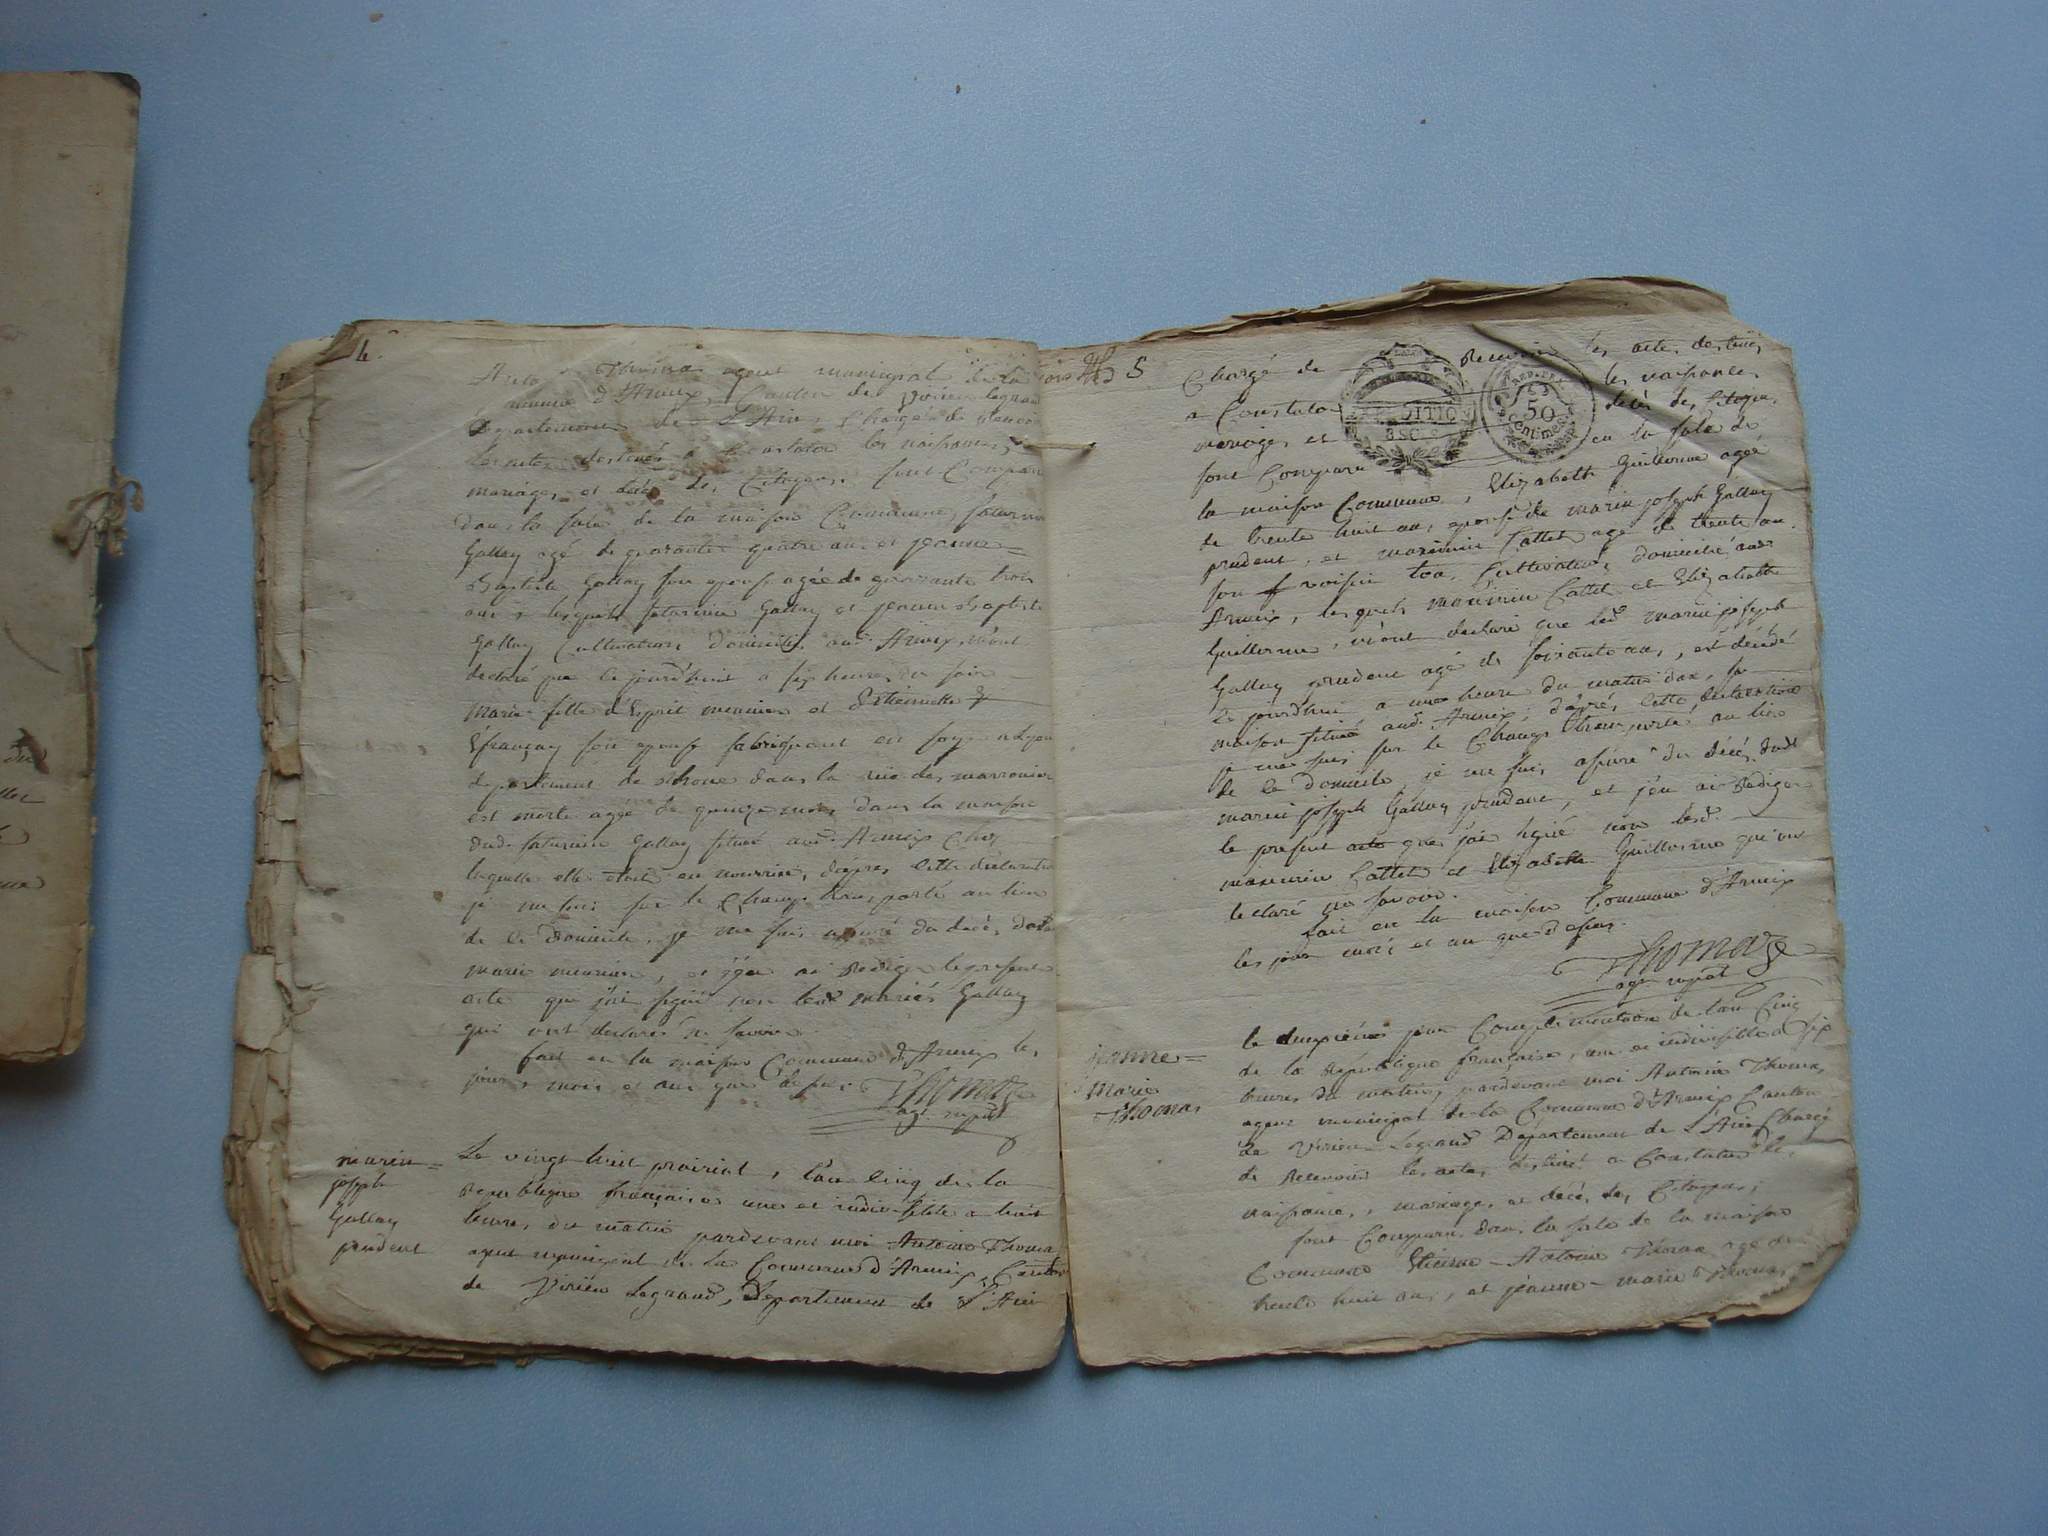 4.
Antoine Thomas agent municipal de la com
mune d'Armix, Canton de Virieu legrand
Département de L'Ain, Chargé de Recevoir
les actes destinés a Constater les naissances,
mariages et décès des Citoyens, sont Comparu
dans la sale de la maison Commune, saturnin
Gallay agé de quarante quatre ans et jeanne=
Baptiste Gallay son epouse agée de quarante trois
ans, lesquels saturnin Gallay et jeanne Baptiste
Gallay Cultivateurs domiciliés aud. Armix, m'ont
declaré que le jourd'huit a six heures du soir
Marie fille d'Esprit meunier et Estiennette
françay son epouse fabriquant en soye a Lyon
departement de Rhone dans la rüe des marronier
est morte agée de quinze mois dans la maison
dud. saturnin Gallay situé aud. Armix Chez
laquelle elle etoit en nourrice, d'après cette declaration
je me suis sur le Champ transporté au lieu
de ce domicile, je me suis assuré du décès de lad.
marie meunier, et j'en ai Rediger le present
acte que j'ai signé non lesd. mariés Gallay
qui ont declarés ne savoir.
fait en la maison Commune d'Armix les
jour, mois et ans que dessus. Thomas
agt. mpal
marin=
joseph
Gallay
prudent
Le vingt huit prairial, l'an Cinq de la
Republique françaises une et indivisible a huit
heures du matin pardevant moi Antoine Thomas
agent municipal de la Commune d'Armix, Canton
de Virieu Legrand, Département de L'Ain
5
Chargé de Recevoir les actes destinés
a Constater les naissances
mariages et décès des Citoyens
sont Comparu en la sale de
50
Centimes
la maison Commune, Elizabeth Guillerme agée
de trente huit ans, epouse de marin joseph Gallay
prudent, et maximin Cattet agé de trente ans
son voisin tou, Cultivateurs domiciliés aud.
Armix, lesquels maximin Cattet et Elizabeth
Guillerme, m'ont declaré que led. marin joseph
Gallay prudent agé de soixante ans, est décédé
le jourd'hui a une heure du matin dan, sa
maison situé aud. Armix; d'après cette declaration
je me suis sur le Champ transporté au lieu
de ce domicile, je me suis assuré du décès dud.
marin joseph Gallay prudent, et j'en ai Rediger
le present acte que j'ai signé non lesd.
maximin Cattet et Elizabeth Guillerme qui ont
declaré ne savoir.
fait en la maison Commune d'Armix
les jour mois et an que dessus.
Thomas
agt. mpal
jeanne=
Marie
Thomas
le deuxième jour Complémentaire de l'an Cinq
de la Republique française, une et indivisible a six
heures du matin, pardevant moi Antoine Thomas
agent municipal de la Commune d'Armix Canton
de Virieu Legrand Département de L'Ain Chargé
de Recevoir les actes destinés a Constater les
naissances, mariages, et décès des Citoyens;
sont Comparu dans la sale de la maison
Commune Etienne-Antoine Thomas agé de
trente huit ans, et jeanne-marie Thomas